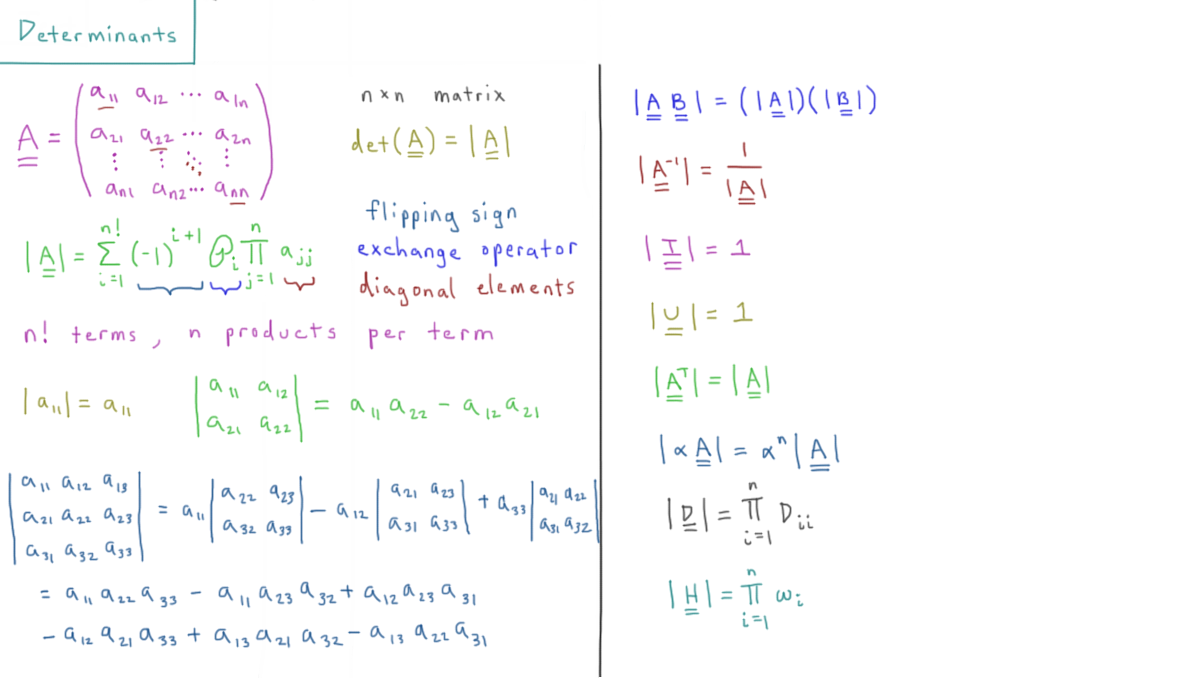 Determinants
A = ( a₁₁ a₁₂ ⋯ a₁ₙ
a₂₁ a₂₂ ⋯ a₂ₙ
⋮ ⋮ ⋱ ⋮
aₙ₁ aₙ₂ ⋯ aₙₙ )
n×n matrix
det(A) = |A|
|A| = Σᵢ₌₁ⁿ! (-1)ⁱ⁺¹ 𝒫ᵢ Πⱼ₌₁ⁿ aⱼⱼ
flipping sign
exchange operator
diagonal elements
n! terms, n products per term
|a₁₁| = a₁₁
| a₁₁ a₁₂
a₂₁ a₂₂ | = a₁₁ a₂₂ - a₁₂ a₂₁
| a₁₁ a₁₂ a₁₃
a₂₁ a₂₂ a₂₃
a₃₁ a₃₂ a₃₃ | = a₁₁ | a₂₂ a₂₃
a₃₂ a₃₃ | - a₁₂ | a₂₁ a₂₃
a₃₁ a₃₃ | + a₃₃ | a₂₁ a₂₂
a₃₁ a₃₂ |
= a₁₁ a₂₂ a₃₃ - a₁₁ a₂₃ a₃₂ + a₁₂ a₂₃ a₃₁
- a₁₂ a₂₁ a₃₃ + a₁₃ a₂₁ a₃₂ - a₁₃ a₂₂ a₃₁
|A B| = (|A|)(|B|)
|A⁻¹| = 1/|A|
|I| = 1
|U| = 1
|Aᵀ| = |A|
|αA| = αⁿ|A|
|D| = Πᵢ₌₁ⁿ Dᵢᵢ
|H| = Πᵢ₌₁ⁿ ωᵢ